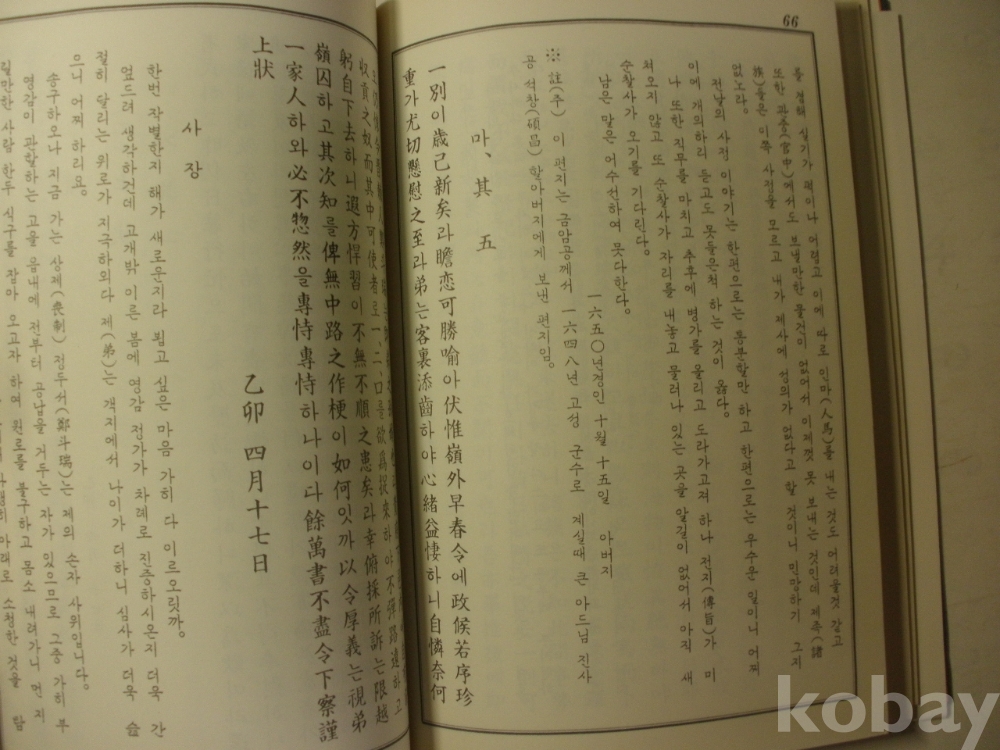 66
를 정해 싣기가 폐이나 어렵고 이에 따로 인마(人馬)를 내는 것도 어려울것 같고
또한 과중(官中)에서도 보낼만한 물건이 없어서 이제껏 못 보내는 것인데 제족(諸
族)들은 이쪽 사정을 모르고 내가 제사에 성의가 없다고 할 것이니 민망하기 그지
없노라。
전날의 사정 이야기는 한편으로는 통분할만 하고 한편으로는 우수운 일이니 어찌
이에 개의하리 듣고도 못들은척 하는 것이 옳다。
나 또한 직무를 마치고 추후에 병가를 올리고 도라가고져 하나 전지(傳旨)가 미
쳐오지 않고 또 순찰사가 자리를 내놓고 물러나 있는 곳을 알길이 없어서 아직 새
순찰사가 오기를 기다린다。
남은 말은 어수선하여 못다한다。
一六五○년경인 十월 十五일 아버지
※ 註(주) 이 편지는 금암공께서 一六四八년 고성 군수로 계실때 큰 아드님 진사
공 석창(碩昌) 할아버지에게 보낸 편지임。
마、其 五
一別이 歲己新矣라 瞻恋可勝喻아 伏惟嶺外早春令에 政候若序珍
重가 尤切懸慰之至라 弟는 客裏添齒하야 心緒益悽하니 自憐奈何
收貢之奴而其中可使者로 一、二、口를 欲爲捉來하야 不憚路遠하고
躬自下去하니 遐方悍習이 不無不順之患矣라 幸俯採所訴는 限越
嶺囚하고 其次知를 俾無中路之作梗이 如何잇까 以令厚義는 視弟
一家人하와 必不恝然을 專恃專恃하나이다 餘萬書不盡令下察謹
上狀
乙卯 四月 十七日
사 장
한번 작별한지 해가 새로운지라 뵙고 싶은 마음 가히 다 이르오릿까。
엎드려 생각하건데 고개밖 이른 봄에 영감 정가가 차례로 진중하시온지 더욱 간
절히 달리는 위로가 지극하외다 제(弟)는 객지에서 나이가 더하니 심사가 더욱 슬
으니 어찌 하리요。
송구하오나 지금 가는 상제(喪制) 정두서(鄭斗瑞)는 제의 손자 사위입니다。
영감이 관할하는 고을 읍내에 전부터 공납을 거두는 자가 있으므로 그중 가히 부
릴만한 사람 한두 식구를 잡아 오고자 하여 원로를 불구하고 몸소 내려가니 먼 지
kobay